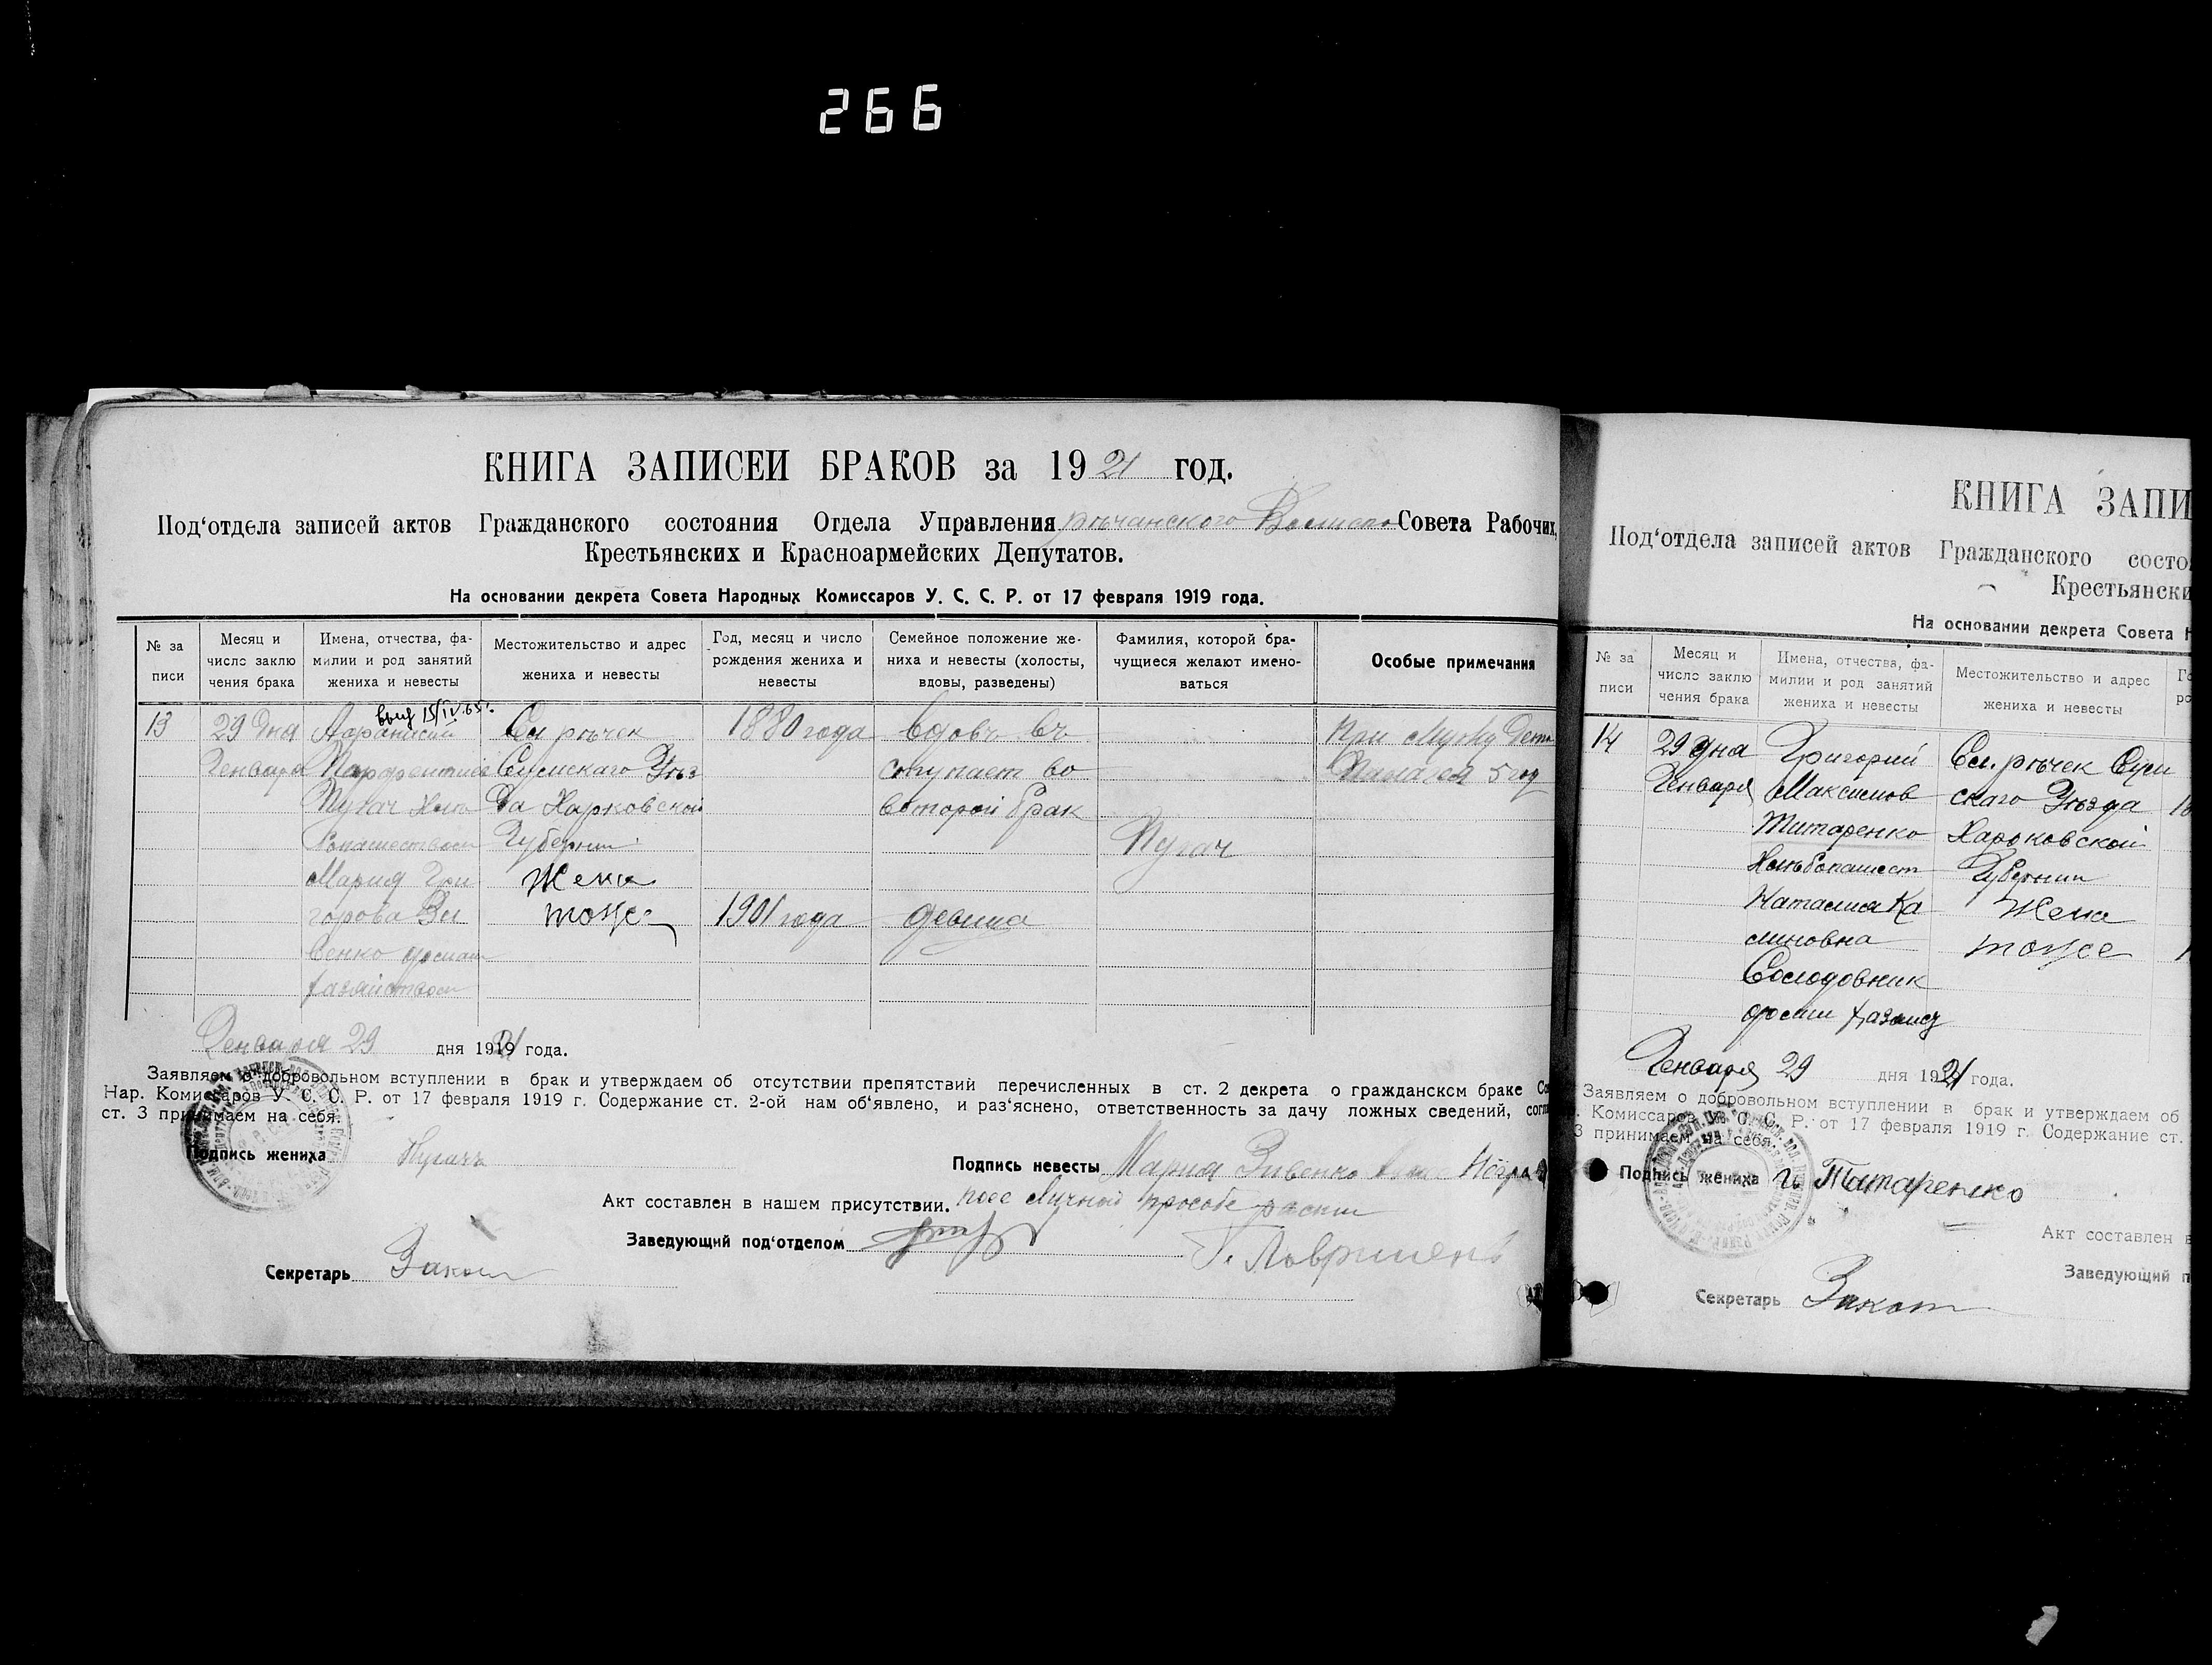 266
КНИГА ЗАПИСЕЙ БРАКОВ за 1921 год.
Под‘отдела записей актов Гражданского состояния Отдела Управления Ръчанского Совета Рабочих,
Крестьянских и Красноармейских Депутатов.
На основании декрета Совета Народных Комиссаров У. С. С. Р. от 17 февраля 1919 года.
№ за писи
Месяц и число заклю чения брака
Имена, отчества, фа- милии и род занятий жениха и невесты
Местожительство и адрес жениха и невесты
Год, месяц и число рождения жениха и невесты
Семейное положение же- ниха и невесты (холосты, вдовы, разведены)
Фамилия, которой бра- чущиеся желают имено- ваться
Особые примечания
13
29 Дня
Генваря
15/IV.65г.
Афанасий
Парфентиев
Пугач
Мария Гри
горова Зи
венко
Сл ръчек
Сумскаго Уъз
да Харковской
Губернии
Жена
тоже
1880 года
1901 года
вдовъ въ
ступает во
второй брак
девица
Пугач
при мужу
5 год
Генваря 29 дня 1921 года.
Заявляем о добровольном вступлении в брак и утверждаем об отсутствии препятствий перечисленных в ст. 2 декрета о гражданском браке
Нар. Комиссаров У. С. С. Р. от 17 февраля 1919 г. Содержание ст. 2-ой нам об‘явлено, и раз‘яснено, ответственность за дачу ложных сведений,
ст. 3 принимаем на себя.
Подпись жениха Пугачъ
Подпись невесты Мария Зивенко
Акт составлен в нашем присутствии. личной
Заведующий под‘отделом
Секретарь
КНИГА ЗАПИ
Под‘отдела записей актов Гражданского состо
Крестьянски
На основании декрета Совета Н
№ за писи
Месяц и число заклю чения брака
Имена, отчества, фа- милии и род занятий жениха и невесты
Местожительство и адрес жениха и невесты
14
29 дня
Генваря
Григорий
Максимов
Титаренко
Хлъбопашест
Наталия Ка
линовна
Солодовник
Сл. ръчек Сум
скаго Уъзда
Харковской
Губернии
Жена
тоже
Генваря 29 дня 1921 года.
Заявляем о добровольном вступлении в брак и утверждаем об
. Комиссаров У. С. С. Р. от 17 февраля 1919 г. Содержание ст.
3 принимаем на себя.
Подпись жениха Г. Титаренко
Акт составлен в
Заведующий п
Секретарь